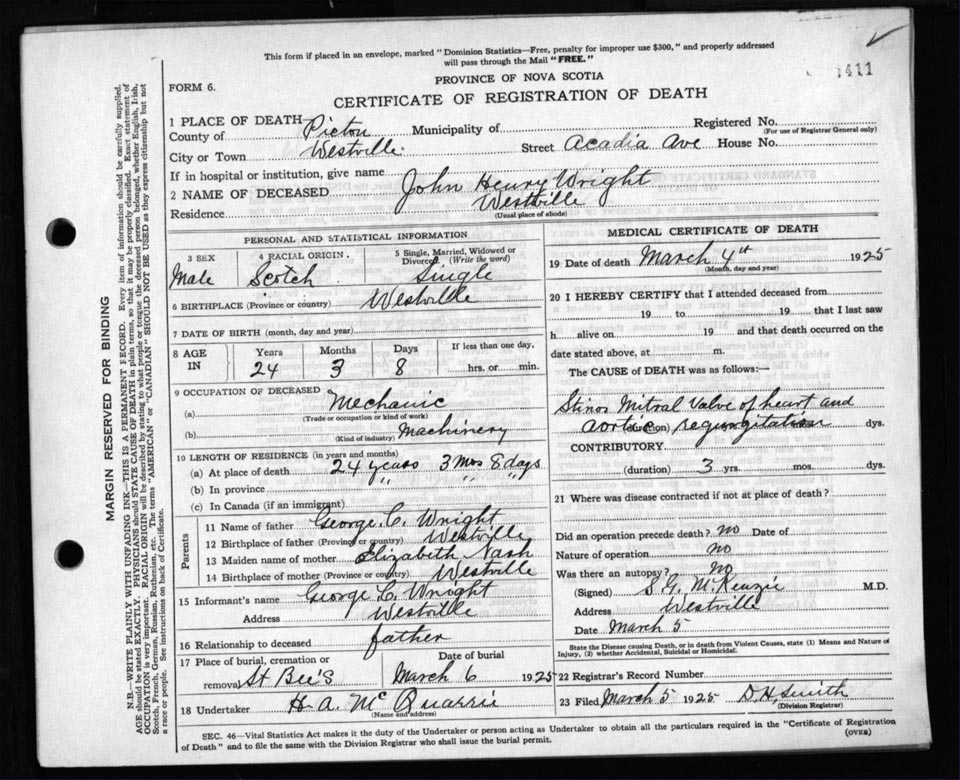 This form if placed in an envelope, marked "Dominion Statistics—Free, penalty for improper use $300," and properly addressed
will pass through the Mail "FREE."
PROVINCE OF NOVA SCOTIA
1411
FORM 6.
CERTIFICATE OF REGISTRATION OF DEATH
1 PLACE OF DEATH
County of Pictou Municipality of Registered No.
(For use of Registrar General only)
City or Town Westville Street Acadia Ave House No.
If in hospital or institution, give name
2 NAME OF DECEASED John Henry Wright
Residence Westville
(Usual place of abode)
PERSONAL AND STATISTICAL INFORMATION
3 SEX 4 RACIAL ORIGIN. 5 Single, Married, Widowed or
Divorced (Write the word)
Male Scotch Single
6 BIRTHPLACE (Province or country) Westville
7 DATE OF BIRTH (month, day and year)
8 AGE IN Years Months Days If less than one day,
24 3 8 hrs. or min.
9 OCCUPATION OF DECEASED
(a) Mechanic
(Trade or occupation or kind of work)
(b) Machinery
(Kind of industry)
10 LENGTH OF RESIDENCE (in years and months)
(a) At place of death 24 years 3 Mos 8 days
(b) In province " " "
(c) In Canada (if an immigrant)
Parents
11 Name of father George C. Wright
12 Birthplace of father (Province or country) Westville
13 Maiden name of mother Elizabeth Nash
14 Birthplace of mother (Province or country) Westville
15 Informant's name George C. Wright
Address Westville
16 Relationship to deceased father
17 Place of burial, cremation or Date of burial
removal St Bee's March 6 1925
18 Undertaker H. A. McQuarrie
(Name and address)
MEDICAL CERTIFICATE OF DEATH
19 Date of death March 4th 1925
(Month, day and year)
20 I HEREBY CERTIFY that I attended deceased from
19 to 19 that I last saw
h alive on 19 and that death occurred on the
date stated above, at m.
The CAUSE of DEATH was as follows:—
Stinos Mitral Valve of heart and
aortic (duration) regurgitation dys.
CONTRIBUTORY
(duration) 3 yrs. mos. dys.
21 Where was disease contracted if not at place of death?
Did an operation precede death? no Date of
Nature of operation no
Was there an autopsy? no
(Signed) McKenzie M.D.
Address Westville
Date March 5
State the Disease causing Death, or in death from Violent Causes, state (1) Means and Nature of
Injury, (2) whether Accidental, Suicidal or Homicidal.
22 Registrar's Record Number
23 Filed March 5 1925 D.H. Smith
(Division Registrar)
SEC. 46—Vital Statistics Act makes it the duty of the Undertaker or person acting as Undertaker to obtain all the particulars required in the "Certificate of Registration
of Death" and to file the same with the Division Registrar who shall issue the burial permit.
(OVER)
MARGIN RESERVED FOR BINDING
N.B.—WRITE PLAINLY WITH UNFADING INK—THIS IS A PERMANENT RECORD. Every item of information should be carefully supplied.
AGE should be stated EXACTLY. PHYSICIANS should STATE CAUSE OF DEATH in plain terms, so that it may be properly classified. Exact statement of
OCCUPATION is very important. RACIAL ORIGIN will be described by stating to what people or tongue the deceased person belonged, whether English, Irish,
Scotch, French, German, Russian, Ruthenian, etc. The terms "AMERICAN" or "CANADIAN" SHOULD NOT BE USED as they express citizenship but not
a race or people. See instructions on back of Certificate.